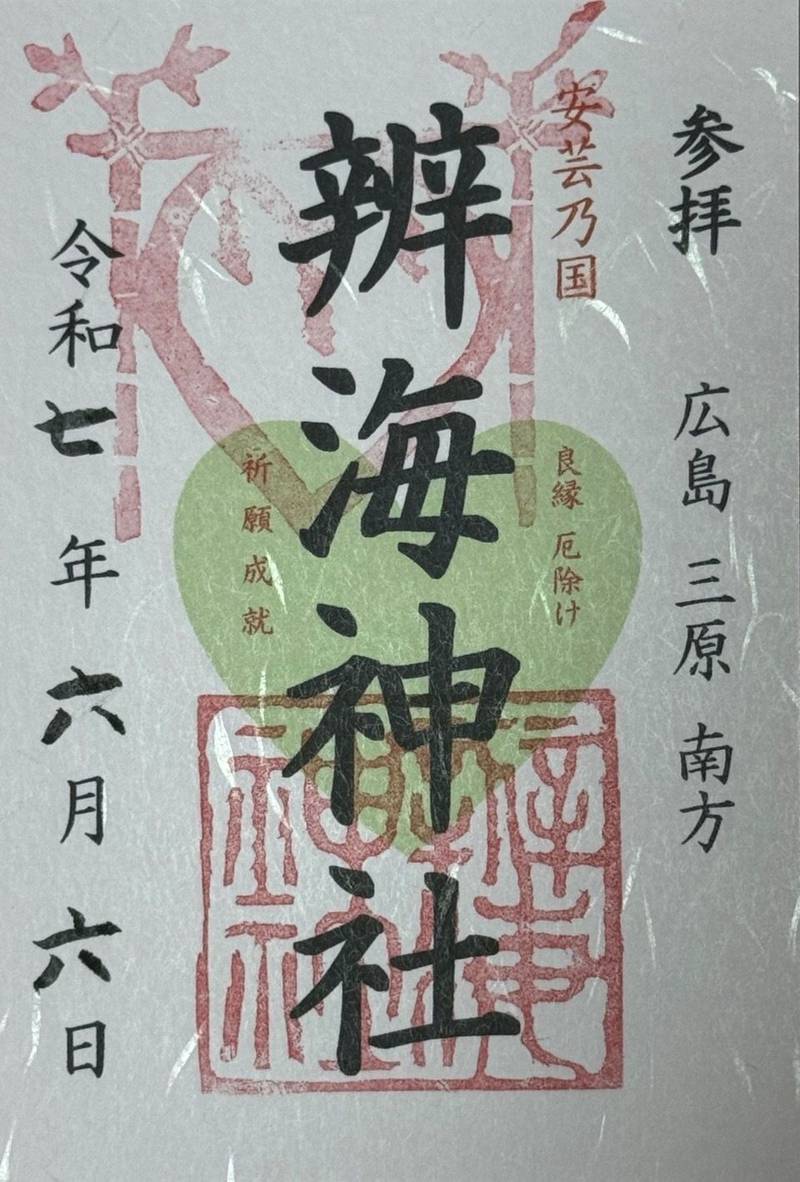 参拝 広島 三原 南方
安芸乃国
良縁 厄除け
辨海神社
祈願成就
令和七年六月六日